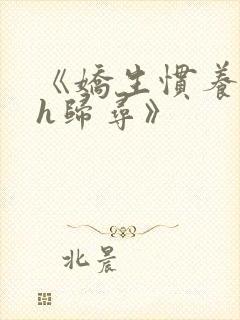 《嬌生慣養
h歸尋》
北晨